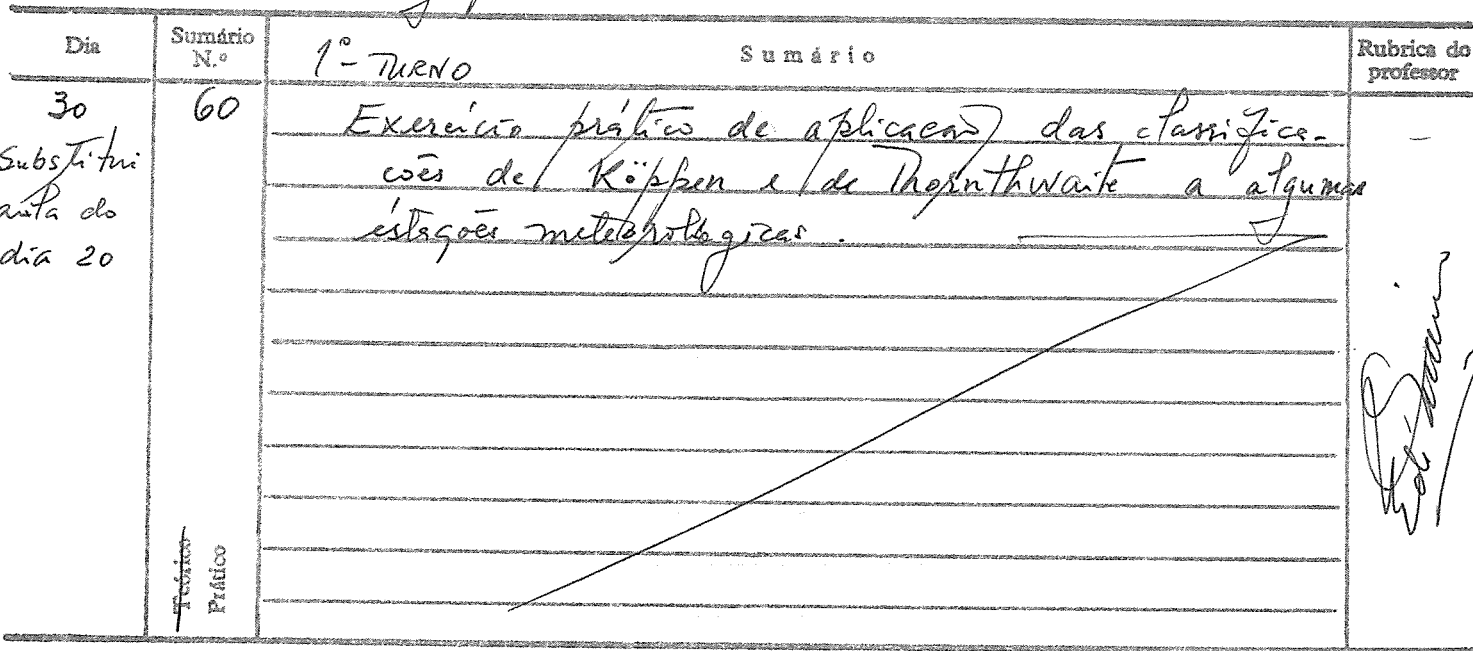 Dia
Sumário N.º
1º - TURNO
Sumário
Rubrica do professor
30
60
Substitui
aula do
dia 20
Exercício prático de aplicação das classifica-
ções de Köppen e de Thornthwaite a algumas
estações meteorológicas.
Teórico
Prático